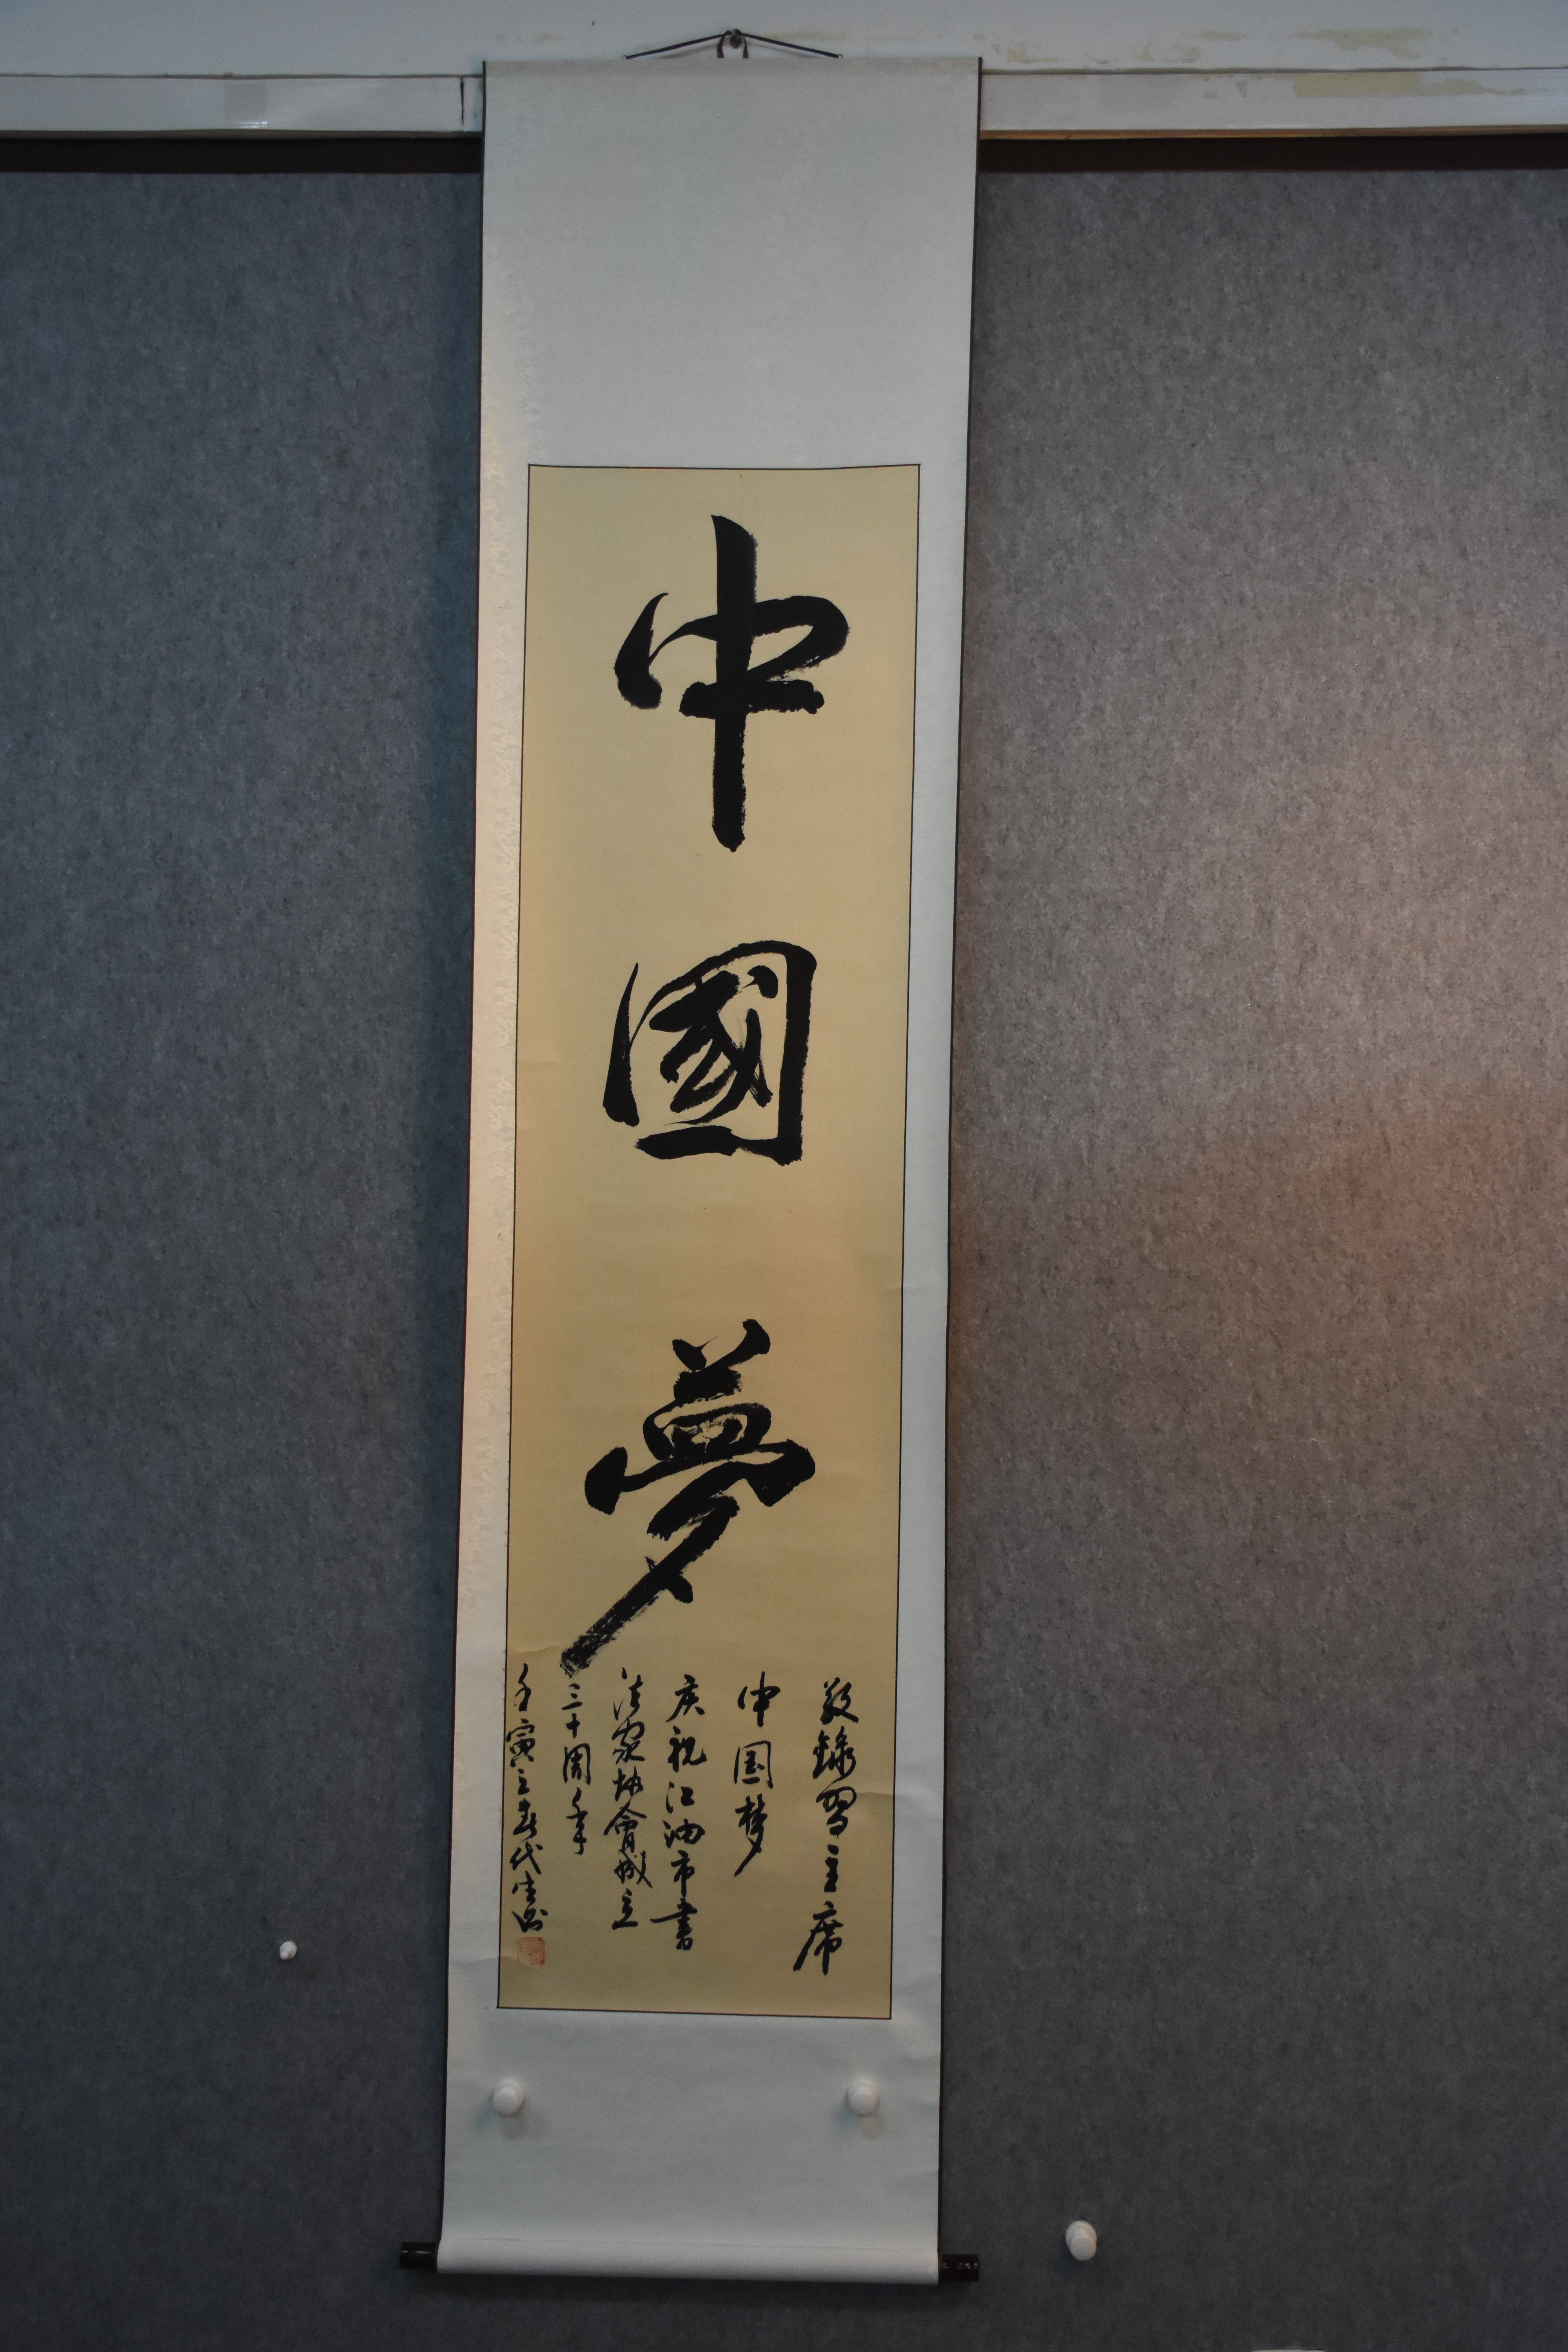 中國夢
敬録習主席
中国梦
庆祝江油市書
法家协會成立
三十周年
壬寅立春代生書